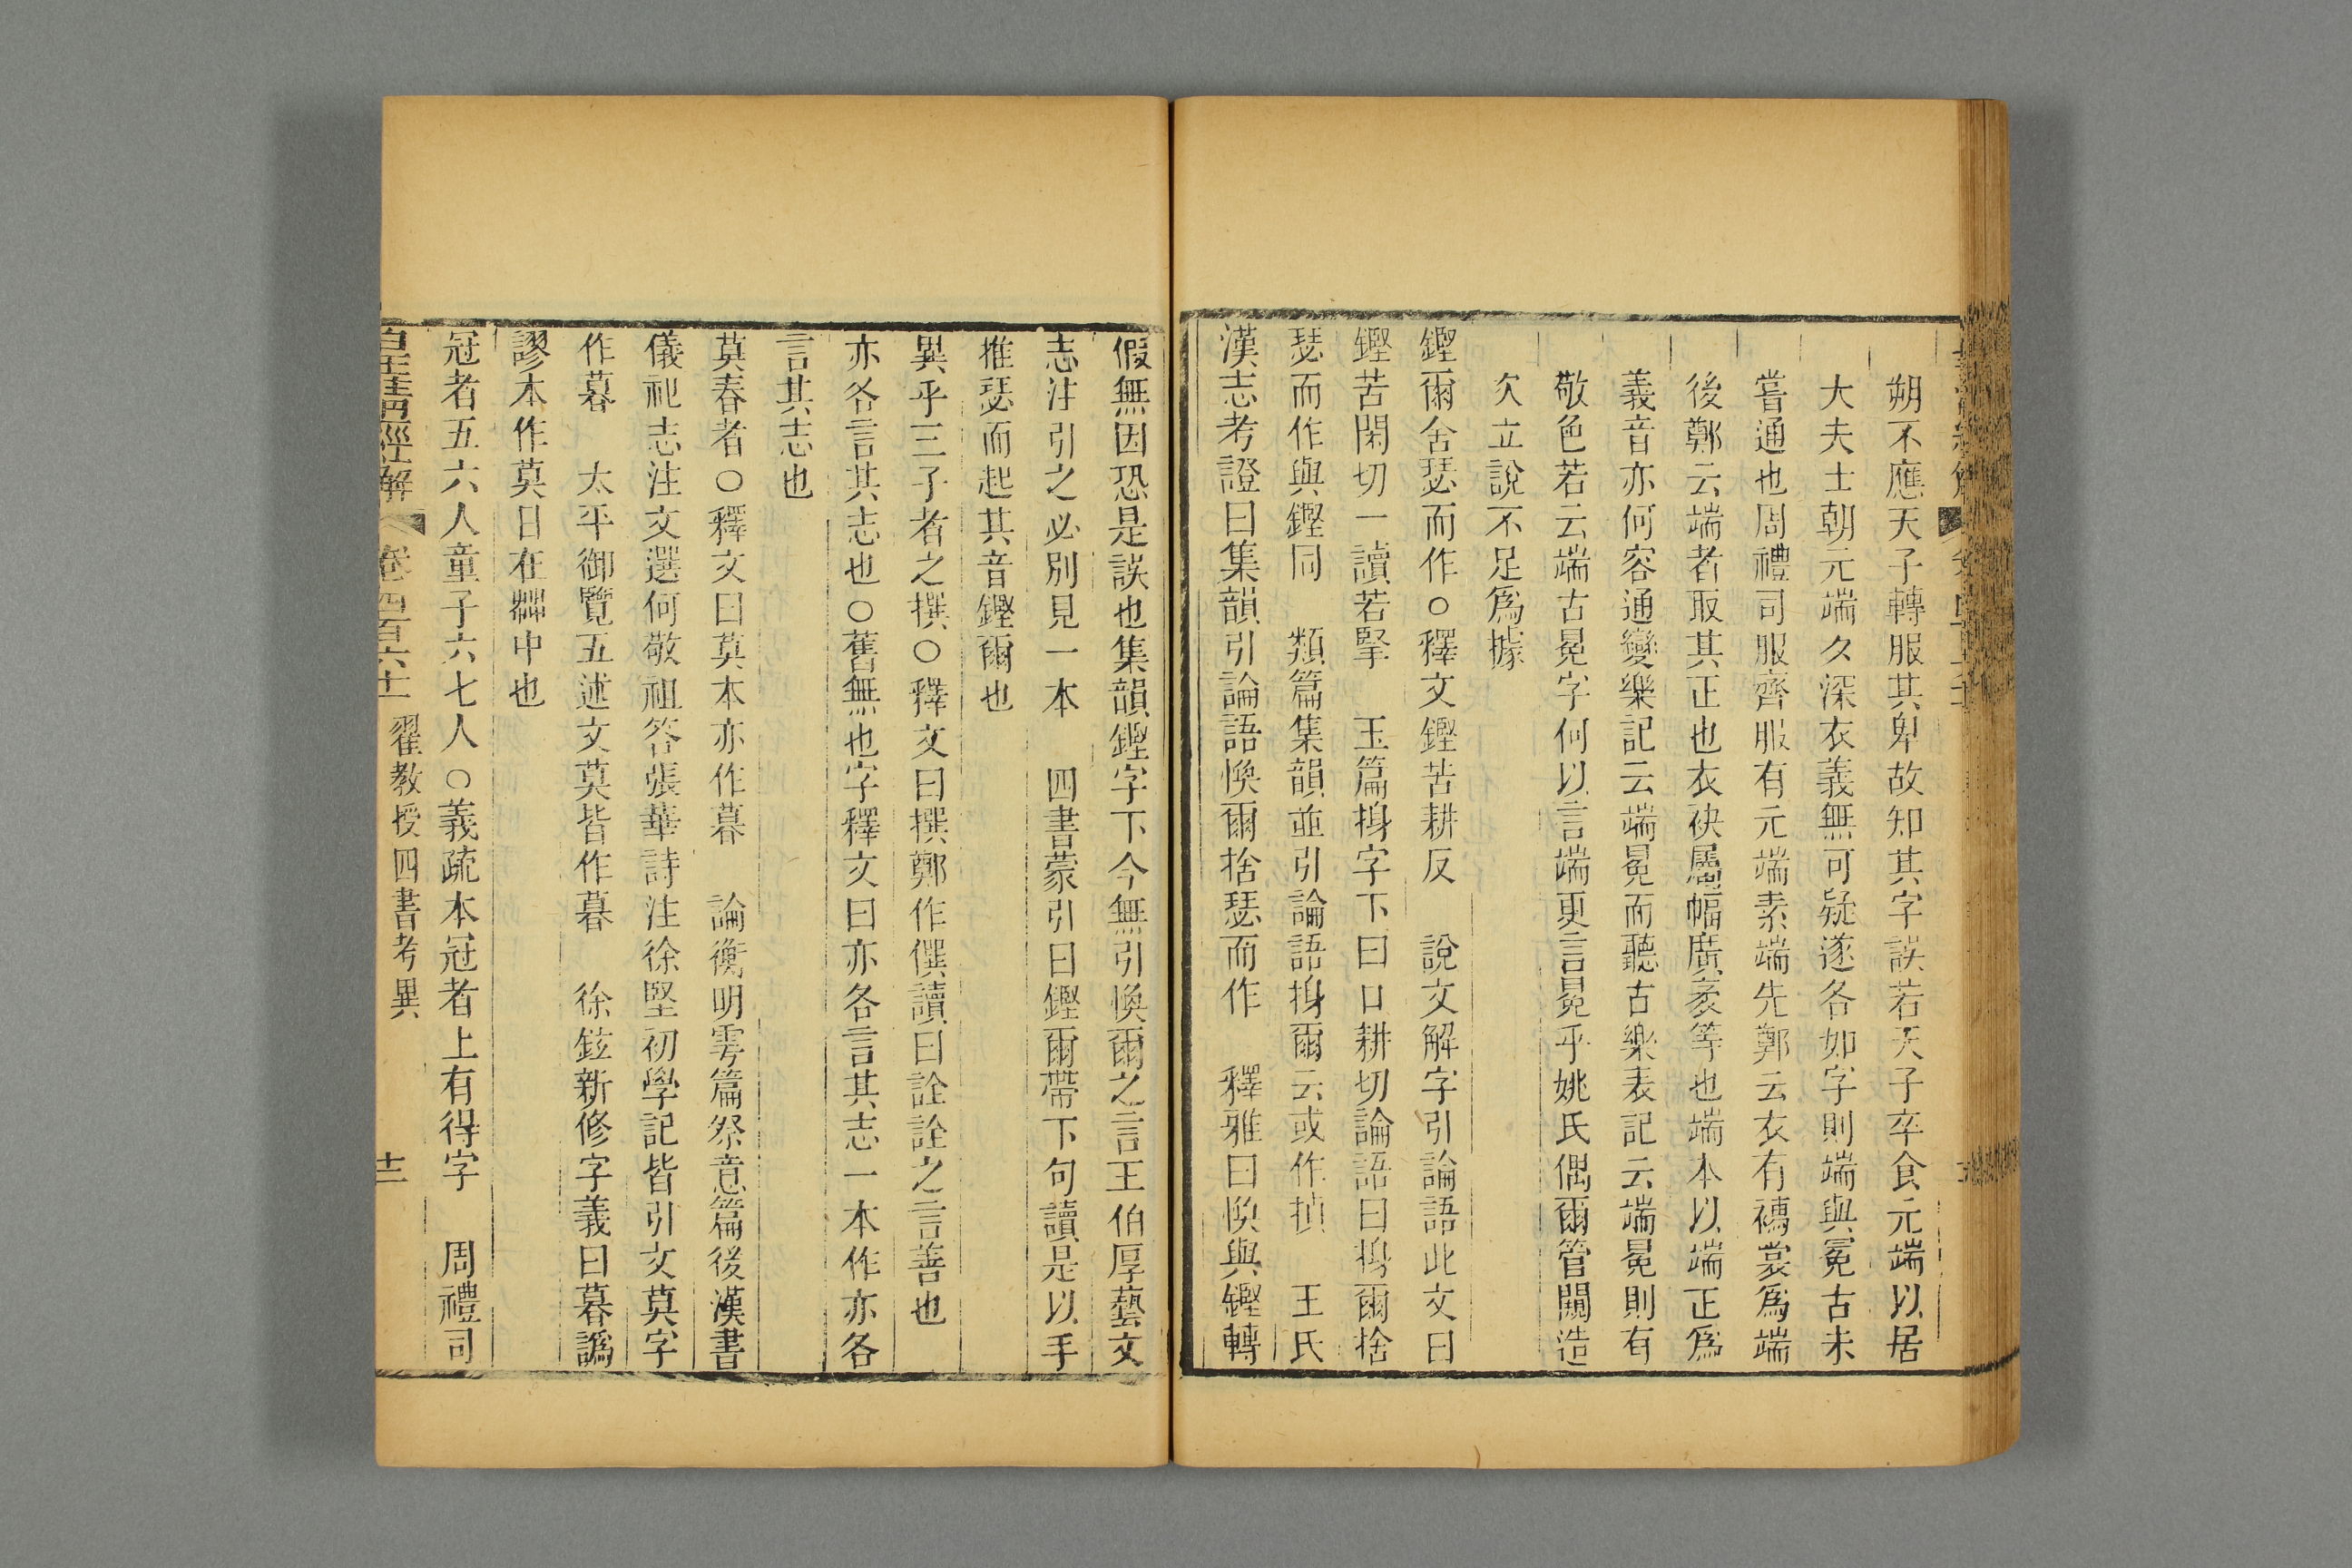 朔不應天子轉服其卑故知其字誤若天子卒食元端以居
大夫士朝元端夕深衣義無可疑遂各如字則端與冕古未
嘗通也周禮司服齊服有元端素端先鄭云衣有襦裳爲端
後鄭云端者取其正也衣袂屬幅廣袤等也端本以端正爲
義音亦何容通變樂記云端冕而聽古樂表記云端冕則有
敬色若云端古冕字何以言端更言冕乎姚氏偶爾管闚造
次立說不足爲據
鏗爾舍瑟而作○釋文鏗苦耕反 說文解字引論語此文曰
鏗苦閑切一讀若掔 玉篇𢴤字下曰口耕切論語曰𢴤爾捨
瑟而作與鏗同 類篇集韻並引論語𢴤爾云或作摼 王氏
漢志考證曰集韻引論語愌爾捨瑟而作 釋雅曰愌與鏗轉
假無因恐是誤也集韻鏗字下今無引愌爾之言王伯厚藝文
志注引之必別見一本 四書蒙引曰鏗爾帶下句讀是以手
推瑟而起其音鏗爾也
異乎三子者之撰○釋文曰撰鄭作僎讀曰詮詮之言善也
亦各言其志也○舊無也字釋文曰亦各言其志一本作亦各
言其志也
莫春者○釋文曰莫本亦作暮 論衡明雩篇祭意篇後漢書
儀祀志注文選何敬祖答張華詩注徐堅初學記皆引文莫字
作暮 太平御覽五述文莫皆作暮 徐鉉新修字義曰暮譌
謬本作莫日在茻中也
冠者五六人童子六七人○義疏本冠者上有得字 周禮司
皇淸經解 卷四百六十一 翟教授四書考異 十二